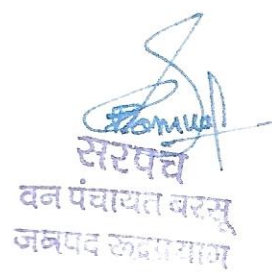 सरपंच
वन पंचायत बरसू
जनपद रूद्रप्रयाग